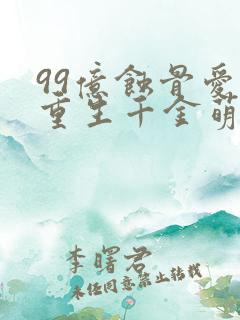 99億蝕骨愛
重生千金萌
李曙君
未任同意禁止转载